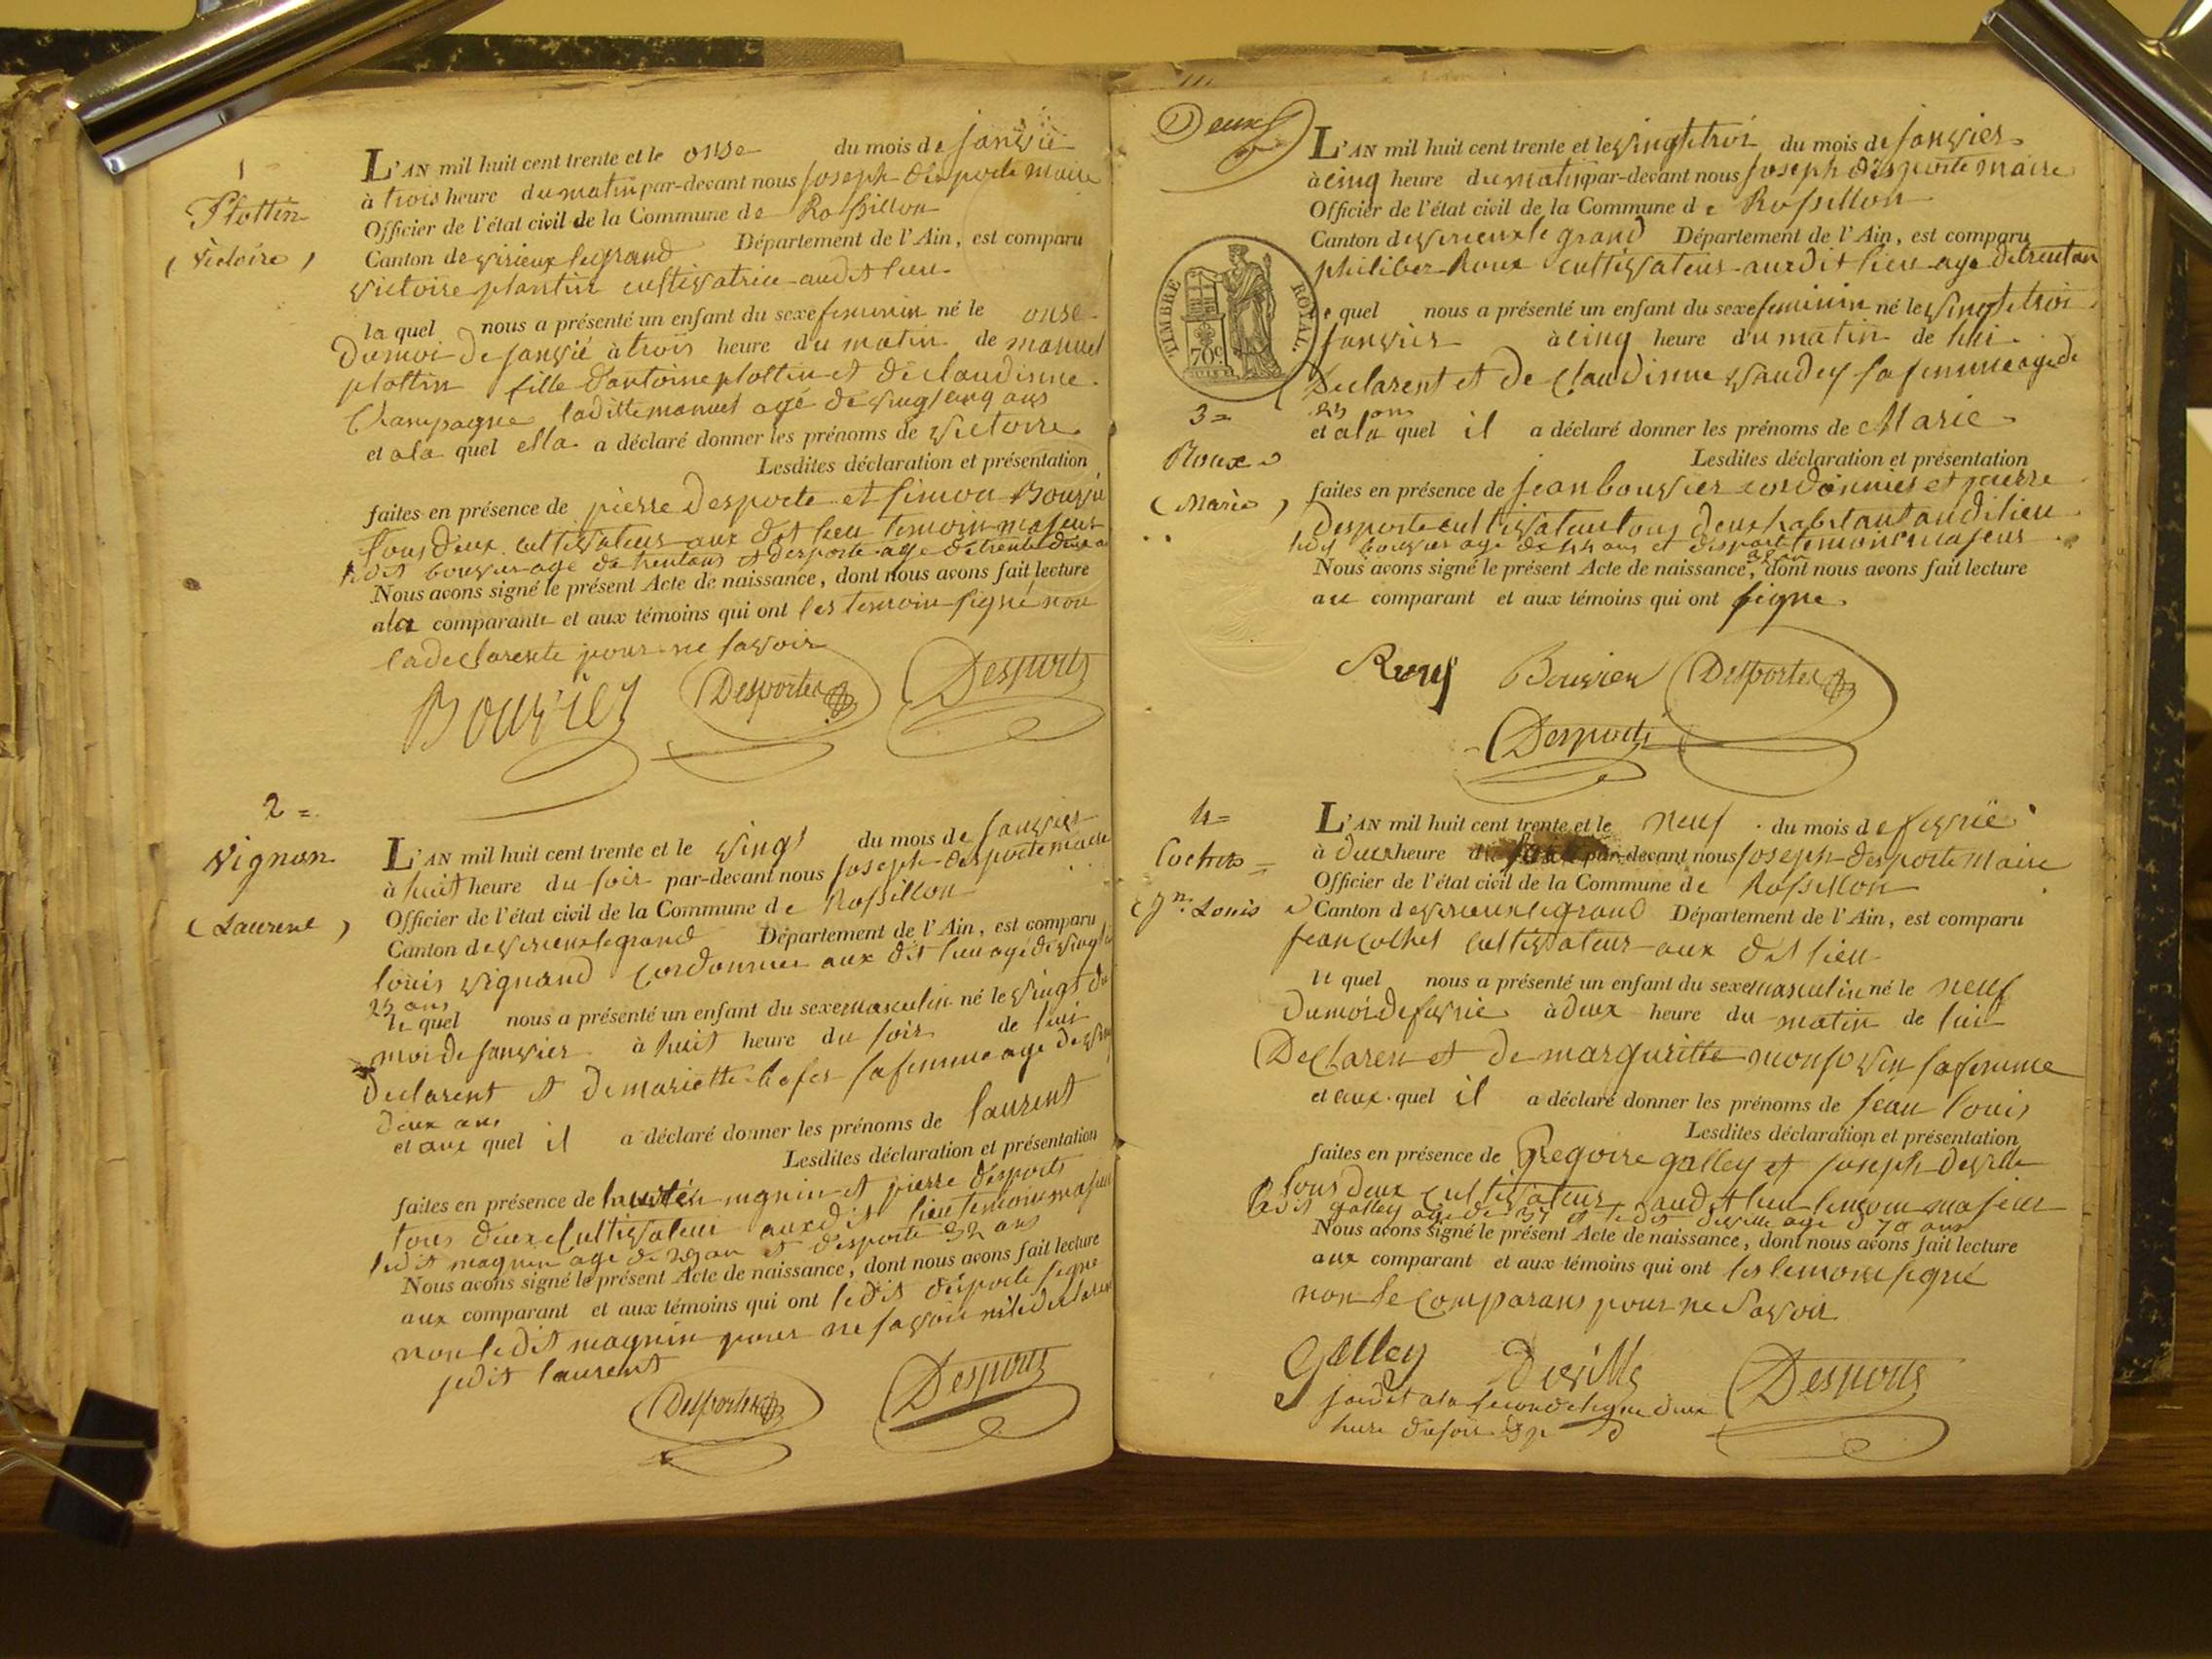 1
Plottin
( Victoire )
L'AN mil huit cent trente et le onse du mois de janvié
à trois heure du matin par-devant nous joseph desporte maire
Officier de l'état civil de la Commune de Rossillon
Canton de virieux le grand Département de l'Ain, est comparu
victoire plantin cultivatrice audit lieu
la quel nous a présenté un enfant du sexe feminin né le onse
du moi de janvié à trois heure du matin de manuel
plottin fille d'antoine plottin et de claudinne
Champagne laditte manuel agé de vingt cinq ans
et a la quel ella a déclaré donner les prénoms de victoire
Lesdites déclaration et présentation
faites en présence de pierre desporte et simon
tous deux cultivateur aux dit lieu temoin majeur
ledit bouvier age de trentans et desporte age de trente deux
Nous avons signé le présent Acte de naissance, dont nous avons fait lecture
a la comparante et aux témoins qui ont les temoin signé non
la declarente pour ne savoir
Bouvier Desportes Desporte
2 =
Vignan
( Laurent )
L'AN mil huit cent trente et le vingt du mois de janvier
à huit heure du soir par-devant nous joseph desporte maire
Officier de l'état civil de la Commune de Rossillon
Canton de virieux le grand Département de l'Ain, est comparu
louis vignand cordonnier aux dit lieu agé de vingt
25 ans
le quel nous a présenté un enfant du sexe masculin né le vingt du
moi de janvier à huit heure du soir de lui
declarent et de mariette sa femme age de
deux ans
et aux quel il a déclaré donner les prénoms de laurent
Lesdites déclaration et présentation
faites en présence de magnin et pierre desporte
tous deux cultivateur aux dit lieu temoin majeur
ledit magnin age de an et desporte 32 ans
Nous avons signé le présent Acte de naissance, dont nous avons fait lecture
aux comparant et aux témoins qui ont ledit desporte signe
non ledit magnin pour ne savoir ni le declarent
jedit laurent
Desportes Desporte
Deux
L'AN mil huit cent trente et le vingt et troi du mois de janvier
à cinq heure du matin par-devant nous joseph desporte maire
Officier de l'état civil de la Commune de Rossillon
Canton de virieux le grand Département de l'Ain, est comparu
philiber Roux cultivateur aux dit lieu age de trent an
TIMBRE ROYAL.
70c
le quel nous a présenté un enfant du sexe feminin né le vingt et troi
janvier à cinq heure du matin de lui
Declarent et de claudinne vaudey sa femme age de
25 ans
3 =
Roux
( Marie )
et a la quel il a déclaré donner les prénoms de Marie
Lesdites déclaration et présentation
faites en présence de jean bouvier cordonnier et pierre
desporte cultivateur tous deux habitant audit lieu
ledit bouvier age de 44 ans et desporte temoins majeur
Nous avons signé le présent Acte de naissance, dont nous avons fait lecture
au comparant et aux témoins qui ont signe
Roux Bouvier Desportes
Desporte
4 =
Cochet =
( Jn. Louis )
L'AN mil huit cent trente et le neuf du mois de fevrié
à deux heure du par-devant nous joseph desporte maire
Officier de l'état civil de la Commune de Rossillon
Canton de virieux le grand Département de l'Ain, est comparu
jean cochet cultivateur aux dit lieu
le quel nous a présenté un enfant du sexe masculin né le neuf
du moi de fevrié à deux heure du matin de lui
Declaren et de marguritte sa femme
et aux quel il a déclaré donner les prénoms de jean louis
Lesdites déclaration et présentation
faites en présence de Gregoire galley et joseph deville
tous deux cultivateur audit lieu temoin majeur
ledit galley age de et ledit deville age d 70 ans
Nous avons signé le présent Acte de naissance, dont nous avons fait lecture
aux comparant et aux témoins qui ont les temoin signé
non le comparans pour ne savoir
Galley Deville Desporte
jaidit a la seconde ligne deux
heure du soir